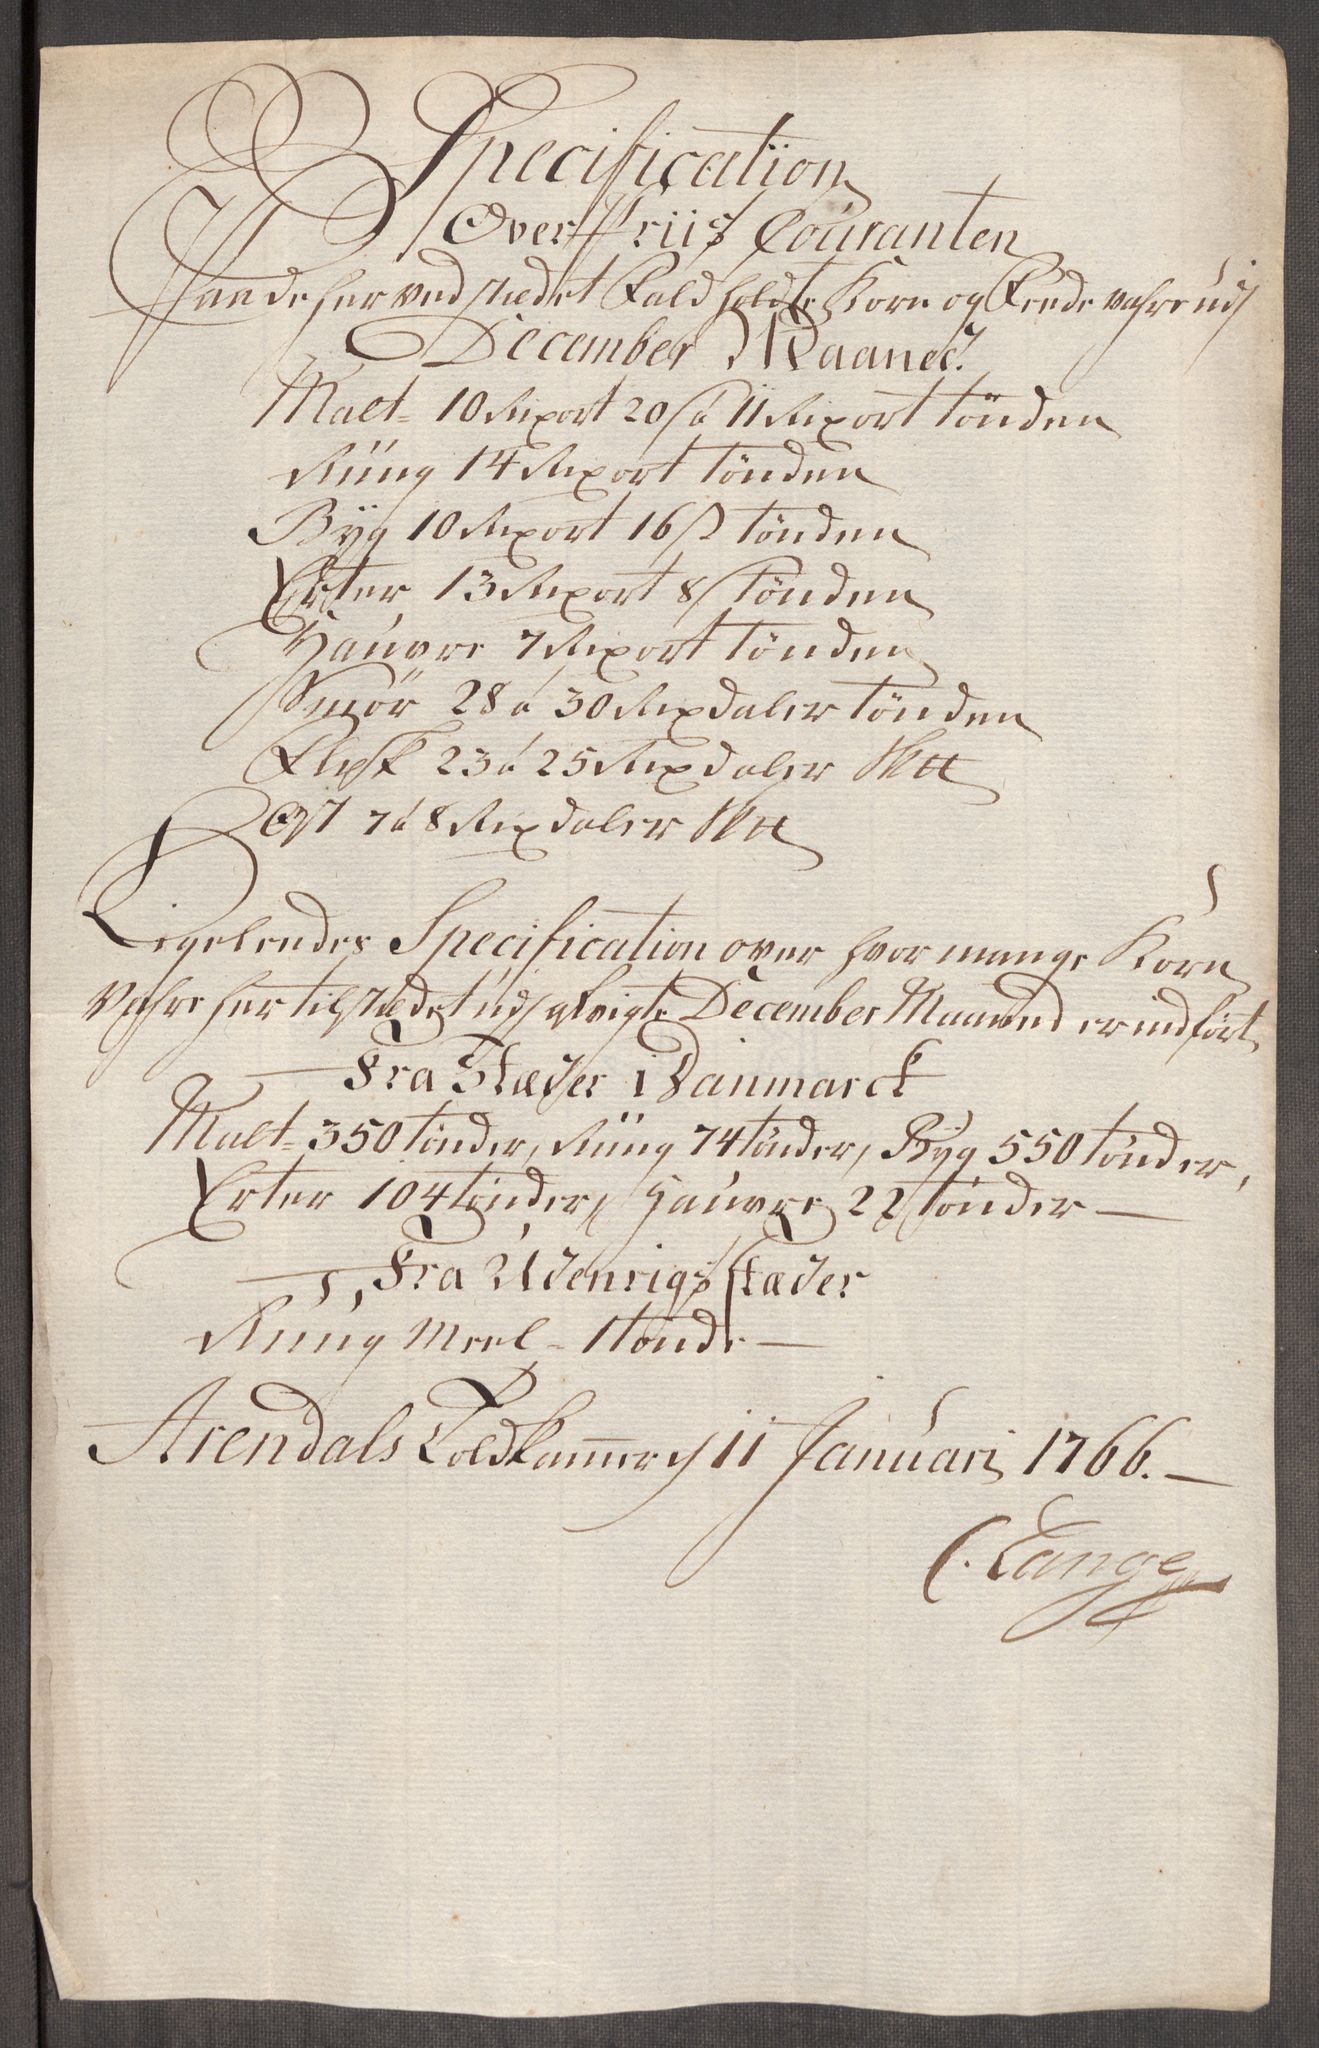 Specification
Over Priis Couranten
Paa de her ved stædet Fald holdte Korn og Feede vahre udj
December Maaned.
Malt- 10 Rixort 20 s à 11 Rixort tönden
Rüug 14 Rixort tönden
Byg 10 Rixort 16 s tönden
Erter 13 Rixort 8 s tönden
Haufre 7 Rixort tönden
Smör 28 à 30 Rixdaler tönden
Flesk 23 à 25 Rixdaler
Ost 7 à 8 Rixdaler
Ligeleedes Specification over hvor mange Korn
Vahre her til stædet udj afvigte December Maaned er indfört
Fra Stæder i Danmarck
Malt- 350 tönder, Rüug 74 tönder, Byg 550 tönder,
Erter 104 tönder, Haufre 22 tönder —
Fra Udenrigs stæder
Rüug Meel - 1 tönde —
Arendals Toldkammer 11 Januari 1766. —
C. Lange